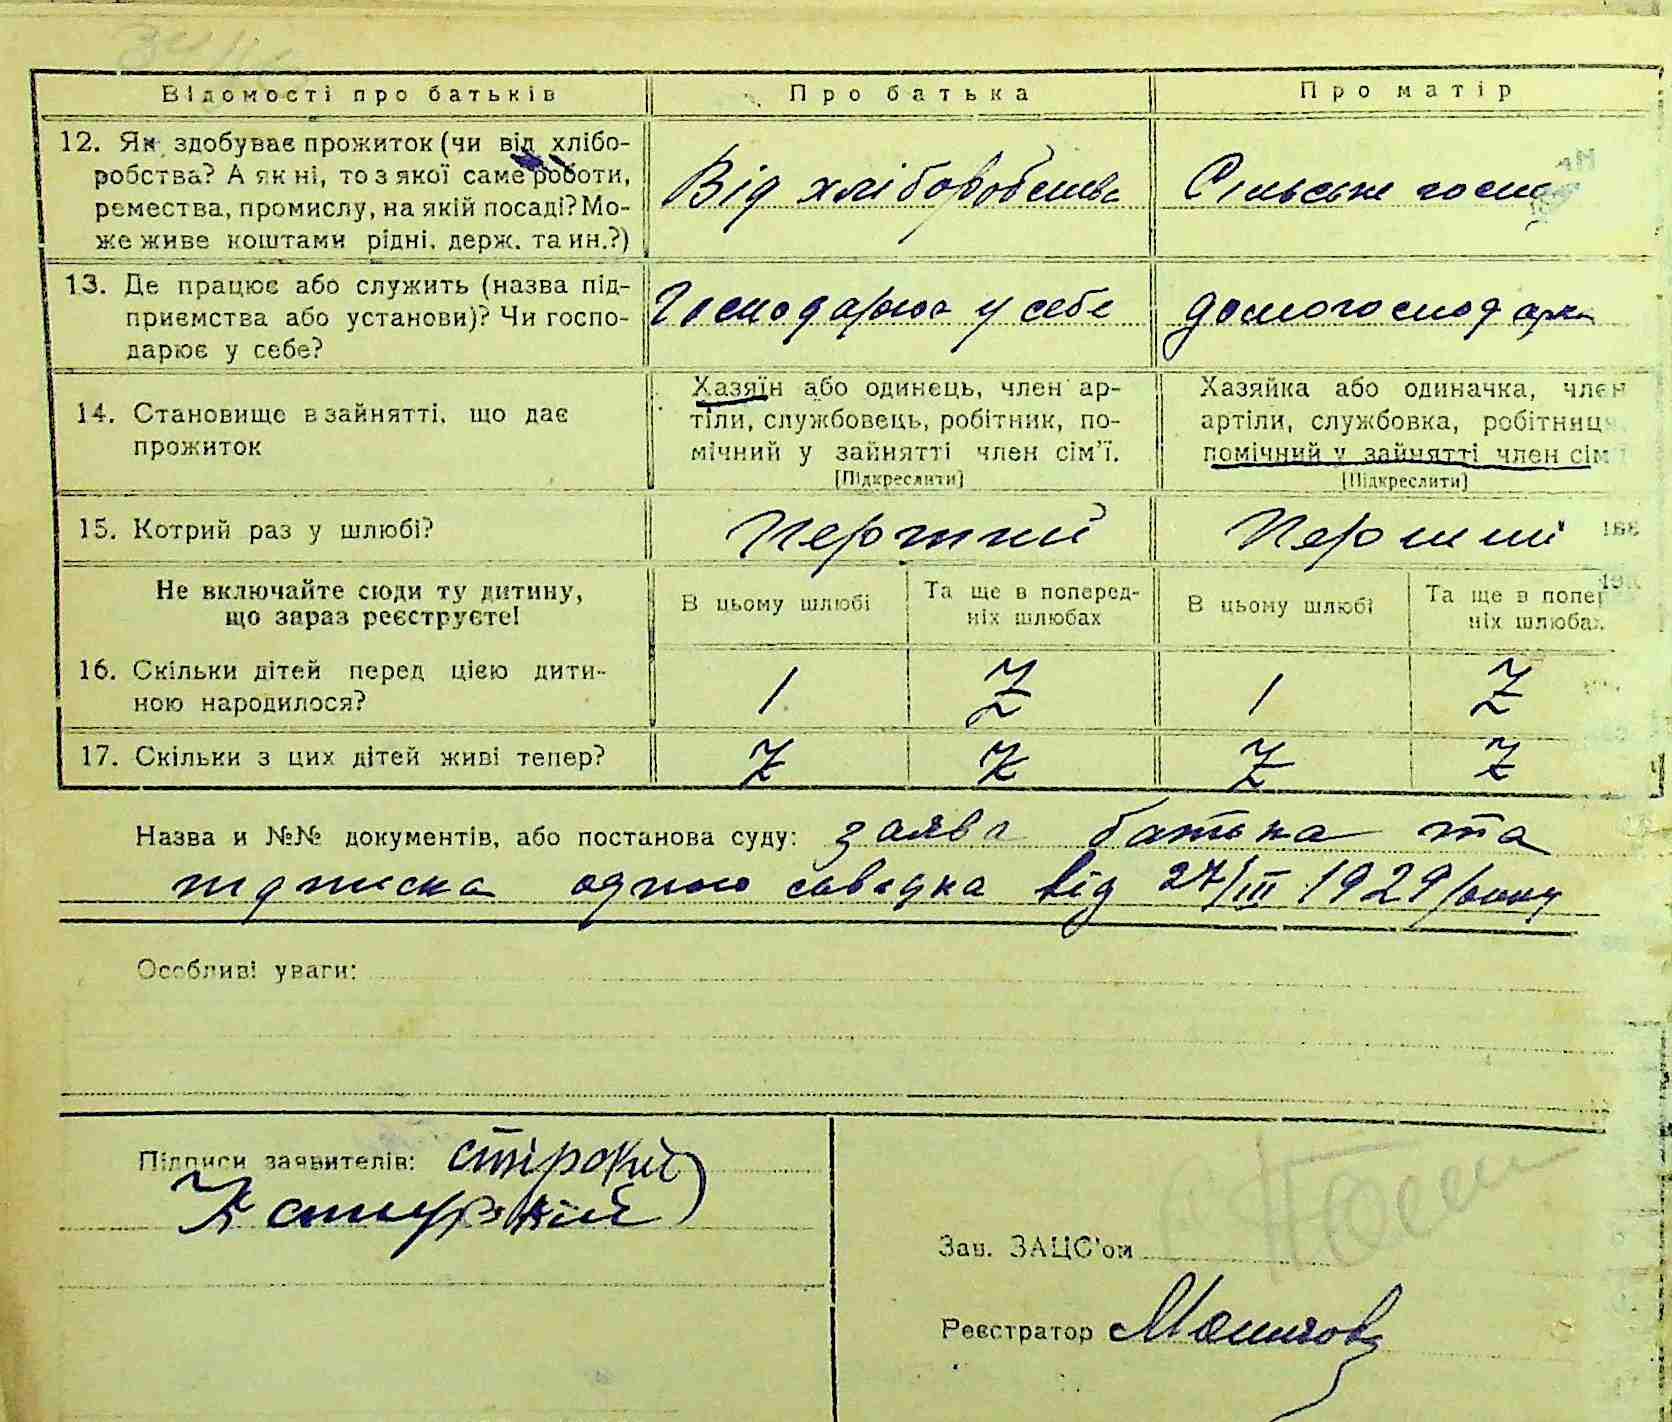 Відомості про батьків Про батька Про матір
12. Як здобуває прожиток (чи від хлібо-
робства? А як ні, то з якої саме роботи,
ремества, промислу, на якій посаді? Мо-
же живе коштами рідні, держ. та ин.?)
Від хліборобства
Сільське госпо
13. Де працює або служить (назва під-
приємства або установи)? Чи госпо-
дарює у себе?
Господарює у себе
домогосподарка
14. Становище в зайнятті, що дає
прожиток
Хазяїн або одинець, член ар-
тіли, службовець, робітник, по-
мічний у зайнятті член сім'ї.
[Підкреслити]
Хазяйка або одиначка, член
артіли, службовка, робітниця,
помічний у зайнятті член сім'ї
[Підкреслити]
15. Котрий раз у шлюбі?
Перший
Перший
Не включайте сюди ту дитину,
що зараз реєструєте!
В цьому шлюбі
Та ще в поперед-
ніх шлюбах
В цьому шлюбі
Та ще в попер
ніх шлюбах
16. Скільки дітей перед цією дити-
ною народилося?
1 Z 1 Z
17. Скільки з цих дітей живі тепер?
Z Z Z Z
Назва и №№ документів, або постанова суду: заява батька та
підписка одного свідка від 27/III 1929 року
Особливі уваги:
Підписи заявителів:
Зав. ЗАЦС'ом
Реєстратор